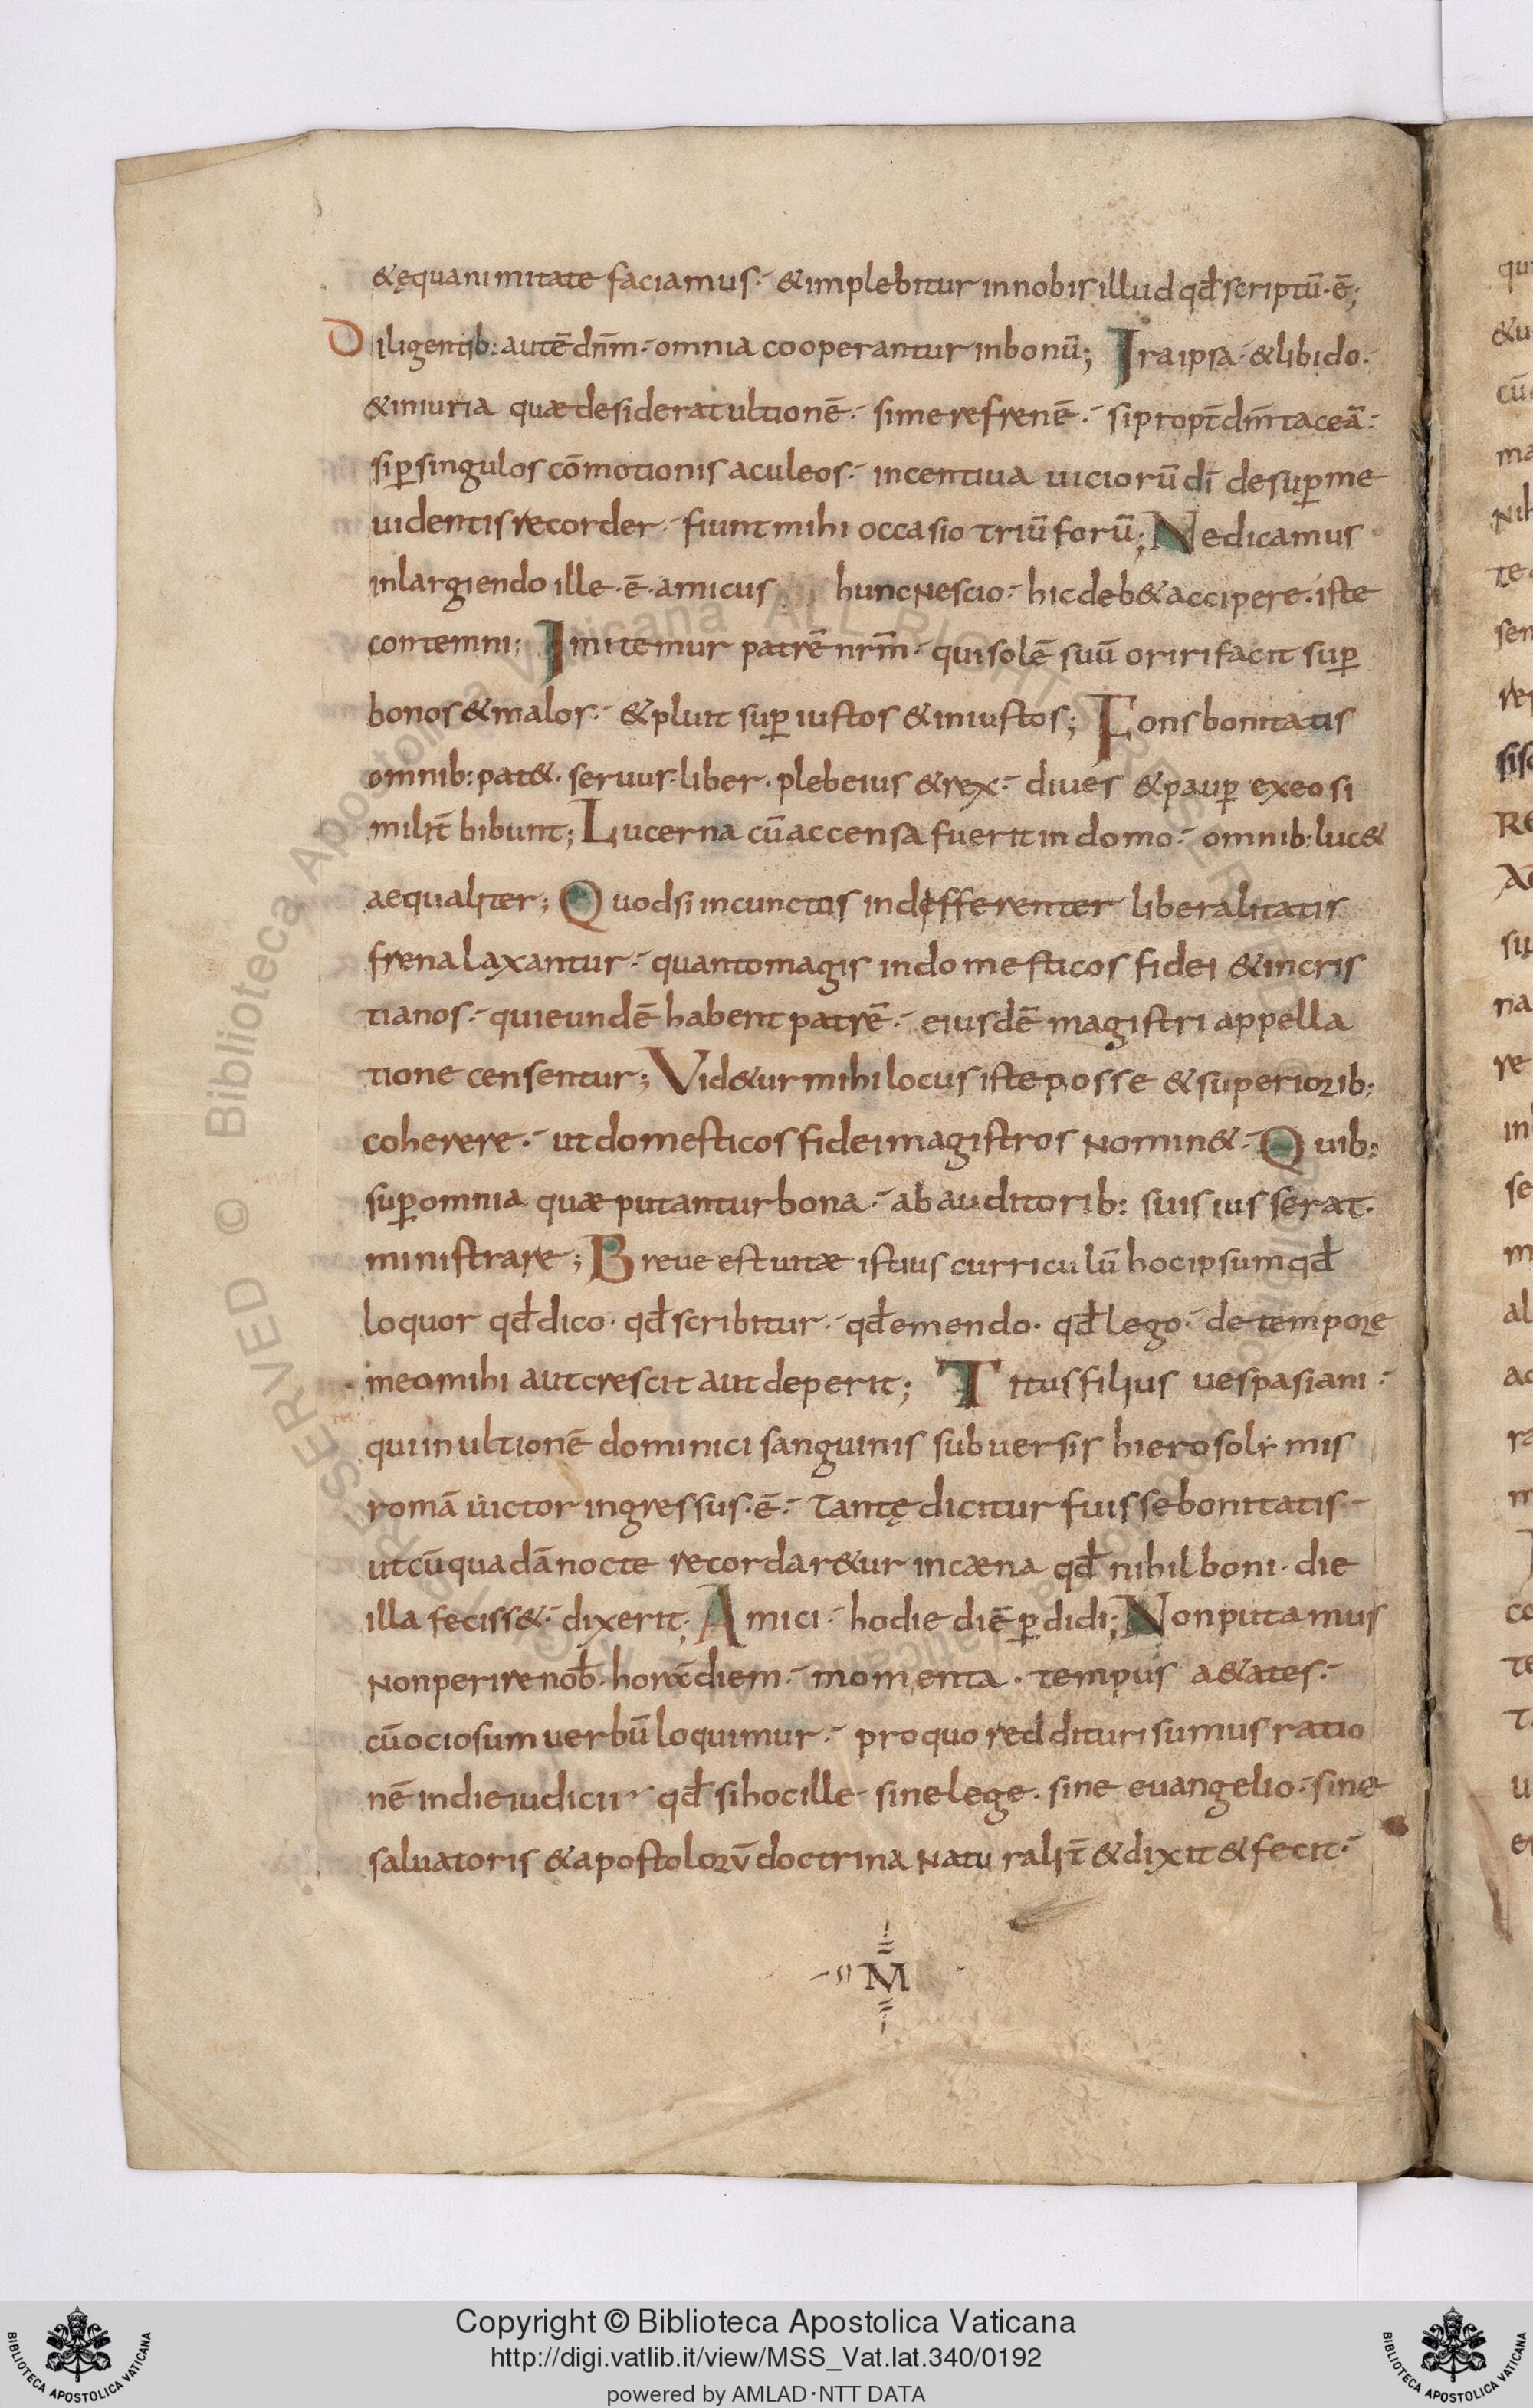 &ęquanimitate faciamus· &implebitur innobis illud qđ scriptū·ē;
Diligentib: autē dn̄m· omnia cooperantur inbonū; Ira ipsa· &libido·
&iniuria quæ desiderat ultionē· sime refrenē· si propt̄ dm̄ taceā·
sip̄ singulos cōmotionis aculeos· incentiua uiciorū dī desup̄ me
uidentis recorder· fiunt mihi occasio triūforū; Ne dicamus
inlargiendo ille·ē·amicus hunc Nescio· hic deb& accipere· iste
contemni; Imitemur patrē nr̄m· qui solē suū oriri facit sup̄
bonos &malos· &pluit sup̄ iustos &iniustos; Fons bonitatis
omnib: pat&· seruus· liber· plebeius &rex· diues &paup̄ exeo si
milit̄ bibunt; Lucerna cū accensa fuerit in domo· omnib: luc&
aequaliter; Quodsi incunctos indefferenter liberalitatis
frena laxantur· quanto magis indomesticos fidei &incris
tianos· qui eundē habent patrē· eiusdē magistri appella
tione censentur; Vid&ur mihi locus iste posse &superiorib:
coherere· ut domesticos fidei magistros Nomin&· Quib:
sup̄ omnia quæ putantur bona· ab auditorib: suis ius serat·
ministrare; Breue est uitæ istius curriculū hoc ipsum qđ
loquor qđ dico· qđ scribitur· qđ emendo· qđ lego· de tempore
meo mihi aut crescit aut deperit; Titus filius uespasiani·
qui in ultionē dominici sanguinis subuersis hierosolimis
romā uictor ingressus·ē· Tantę dicitur fuisse bonitatis·
ut cū quadā nocte recordar&ur in cæna qđ nihil boni· die
illa feciss&· dixerit; Amici· hodie diē p̄didi; Non putamus
Non perire nob̄· horā diem· momenta· tempus a&ates·
cū ociosum uerbū loquimur· pro quo reddituri sumus ratio
nē in die iudicii· qđ si hoc ille sine lege· sine euangelio· sine
saluatoris &apostolorū doctrina Naturalit̄ &dixit &fecit·
M
Copyright © Biblioteca Apostolica Vaticana
http://digi.vatlib.it/view/MSS_Vat.lat.340/0192
powered by AMLAD·NTT DATA
BIBLIOTECA APOSTOLICA VATICANA
BIBLIOTECA APOSTOLICA VATICANA